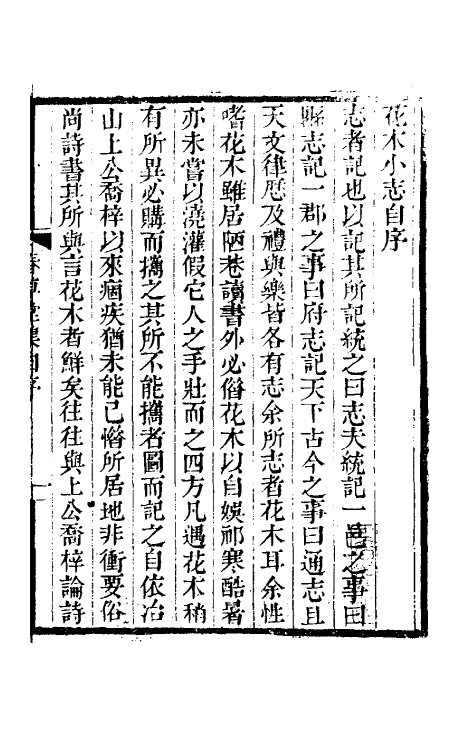 花木小志自序
志者記也以記其所記統之曰志夫統記一邑之事曰
縣志記一郡之事曰府志記天下古今之事曰通志且
天文律厯及禮與樂皆各有志余所志者花木耳余性
嗜花木雖居陋巷讀書外必偹花木以自娛祁寒酷暑
亦未嘗以澆灌假它人之手壯而之四方凡遇花木稍
有所異必購而攜之其所不能攜者圖而記之自依冶
山上公喬梓以來痼疾猶未能已惜所居地非衝要俗
尚詩書其所與言花木者鮮矣往往與上公喬梓論詩
春草堂集自序
一